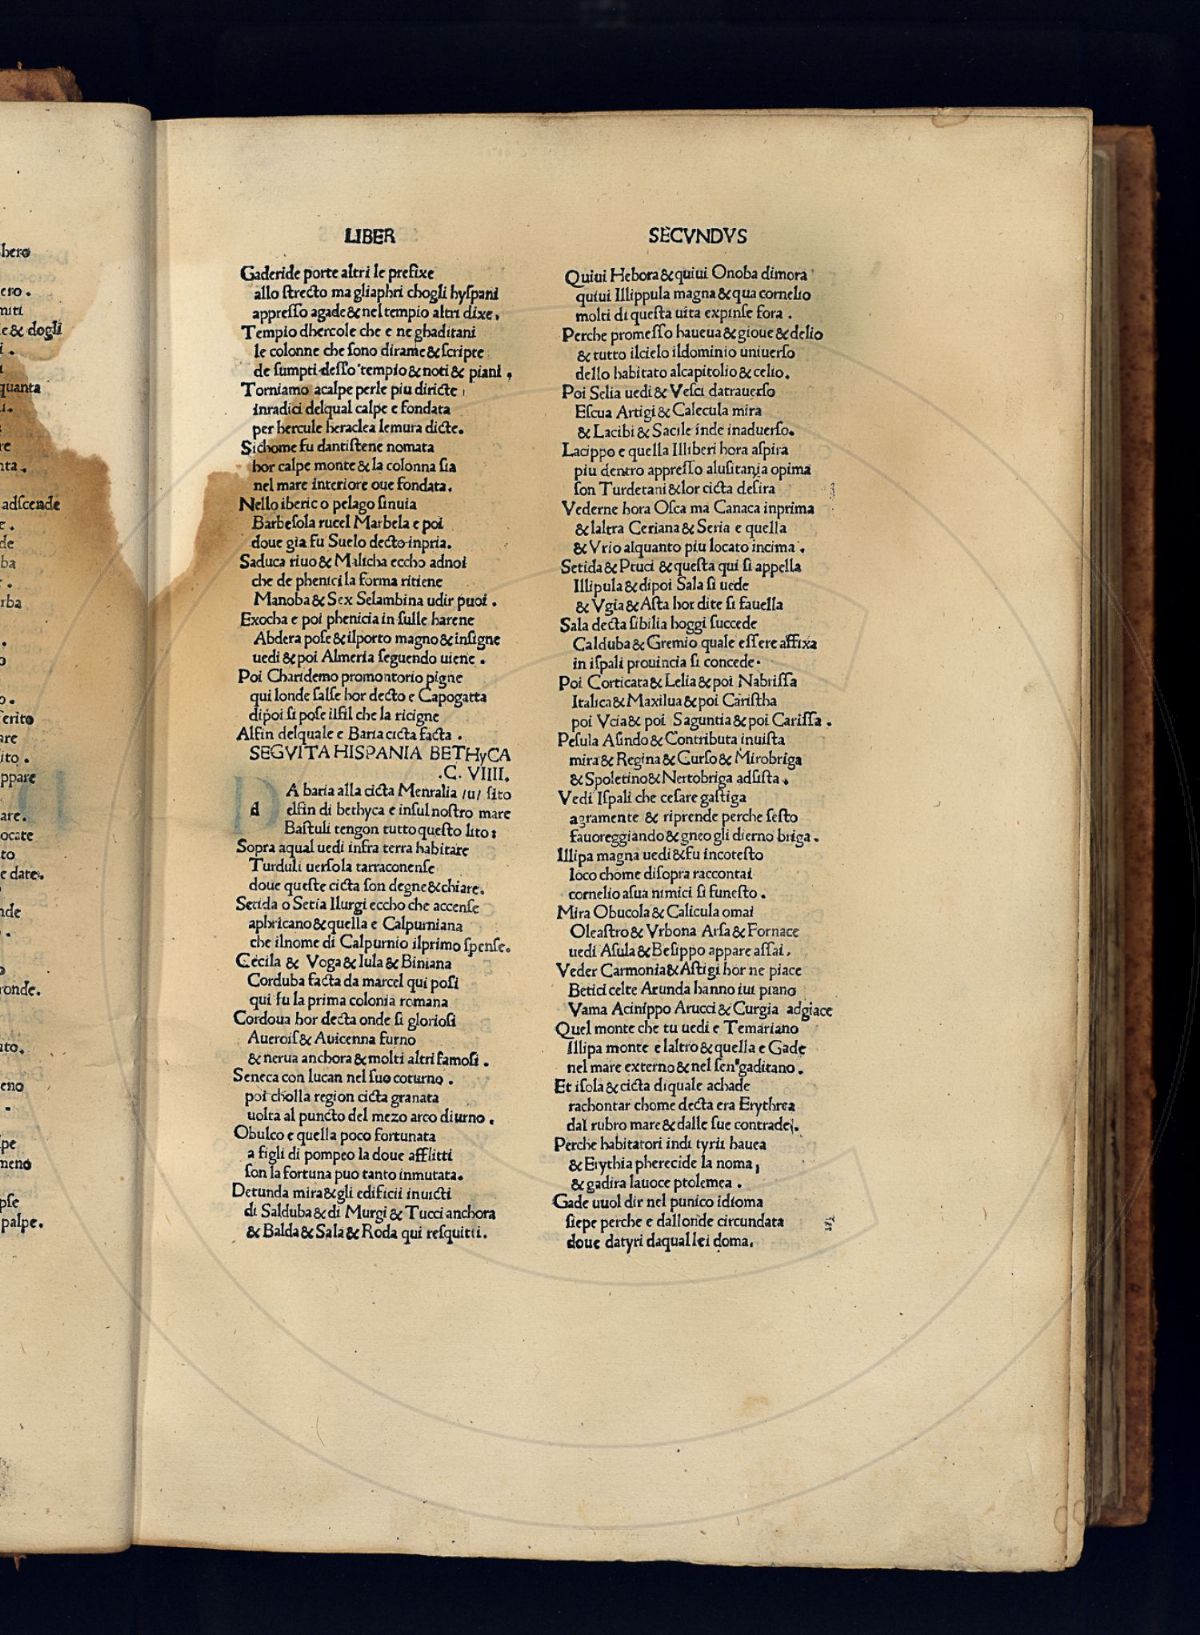 LIBER
Gaderide porte altri le prefixe
allo ſtrecto ma gliaphri chogli hyſpani
appreſſo agade & nel tempio altri dixe,
Tempio dhercole che e ne ghaditani
le colonne che ſono dirame & ſcripte
de ſumpti deſſo tempio & noti & piani ,
Torniamo acalpe perle piu diricte
inradici delqual calpe e fondata
per hercule heraclea lemura dicte.
Sichome fu dantiſtene nomata
hor calpe monte & la colonna ſia
nel mare interiore oue fondata.
Nello iberic o pelago ſinuia
Barbeſola rucel Marbela e poi
doue gia fu Suelo decto inpria.
Saduca riuo & Malicha eccho adnoi
che de phenici la forma ritiene
Manoba & Sex Selambina udir puoi .
Exocha e poi phenicia in ſulle harene
Abdera poſe & ilporto magno & inſigne
uedi & poi Almeria ſeguendo uiene .
Poi Charidemo promontorio pigne
qui londe ſalſe hor decto e Capogatta
dipoi ſi poſe ilſil che la ricigne
Alfin delquale e Baria cicta facta .
SEGVITA HISPANIA BETHyCA
.C. VIIII.
A baria alla cicta Menralia /u/ ſito
d elfin di bethyca e inſul noſtro mare
Baſtuli tengon tutto queſto lito:
Sopra aqual uedi infra terra habitare
Turduli uerſola tarraconenſe
doue queſte cicta ſon degne & chiare.
Setida o Setia Ilurgi eccho che accenſe
aphricano & quella e Calpurniana
che ilnome di Calpurnio ilprimo ſpenſe.
Cecila & Voga & Iula & Biniana
Corduba facta da marcel qui poſi
qui fu la prima colonia romana
Cordoua hor decta onde ſi glorioſi
Aueroiſ & Auicenna furno
& nerua anchora & molti altri famoſi .
Seneca con lucan nel ſuo coturno .
poi cholla region cicta granata
uolta al puncto del mezo arco diurno .
Obulco e quella poco fortunata
a figli di pompeo la doue afflitti
ſon la fortuna puo tanto inmutata.
Detunda mira & gli edificii inuicti
di Salduba & di Murgi & Tucci anchora
& Balda & Sala & Roda qui reſquitti.
SECVNDVS
Quiui Hebora & quiui Onoba dimora
quiui Illippula magna & qua cornelio
molti di queſta uita expinſe fora .
Perche promeſſo haueua & gioue & delio
& tutto ilcielo ildominio uniuerſo
dello habitato alcapitolio & celio.
Poi Selia uedi & Veſci datrauerſo
Eſcua Artigi & Calecula mira
& Lacibi & Sacile inde inaduerſo.
Lacippo e quella Illiberi hora aſpira
piu dentro appreſſo aluſitania opima
ſon Turdetani & lor cicta deſira
Vederne hora Oſca ma Canaca inprima
& laltra Ceriana & Seria e quella
& Vrio alquanto piu locato incima .
Setida & Ptuci & queſta qui ſi appella
Illipula & dipoi Sala ſi uede
& Vgia & Aſta hor dite ſi fauella
Sala decta ſibilia hoggi ſuccede
Calduba & Gremio quale eſſere affixa
in iſpali prouincia ſi concede.
Poi Corticata & Lelia & poi Nabriſſa
Italica & Maxilua & poi Cariſtha
poi Vcia & poi Saguntia & poi Cariſſa .
Peſula Aſindo & Contributa inuiſta
mira & Regina & Curſo & Mirobriga
& Spoletino & Nertobriga adſiſta .
Vedi Iſpali che ceſare gaſtiga
agramente & riprende perche ſeſto
fauoreggiando & gneo gli dierno briga .
Illipa magna uedi & fu incoteſto
loco chome diſopra raccontai
cornelio aſua nimici ſi funeſto .
Mira Obucola & Calicula omai
Oleaſtro & Vrbona Arſa & Fornace
uedi Aſula & Beſippo appare aſſai.
Veder Carmonia & Aſtigi hor ne piace
Betici celte Arunda hanno iui piano
Vama Acinippo Arucci & Curgia adgiace
Quel monte che tu uedi e Temariano
Illipa monte e laltro & quella e Gade
nel mare externo & nel ſen gaditano.
Et iſola & cicta diquale achade
rachontar chome decta era Erythrea
dal rubro mare & dalle ſue contrade.
Perche habitatori indi tyrii hauea
& Erythia pherecide la noma,
& gadira lauoce ptolemea .
Gade uuol dir nel punico idioma
ſiepe perche e dallonde circundata
doue datyri daqual lei doma.